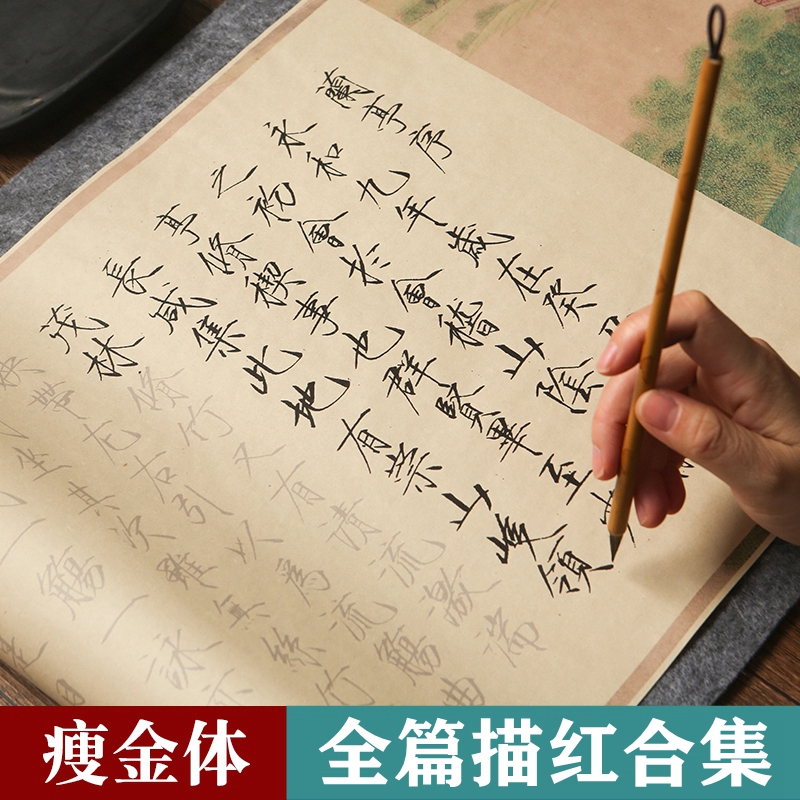 蘭亭序
永和九年歲在癸
之初會於會稽山陰
亭脩禊事也群賢畢至
長咸集此地有崇山峻領
茂林脩竹又有清流激湍
映帶左右引以為流觴曲
坐其次雖無絲竹
一觴一詠亦
瘦金体
全篇描红合集